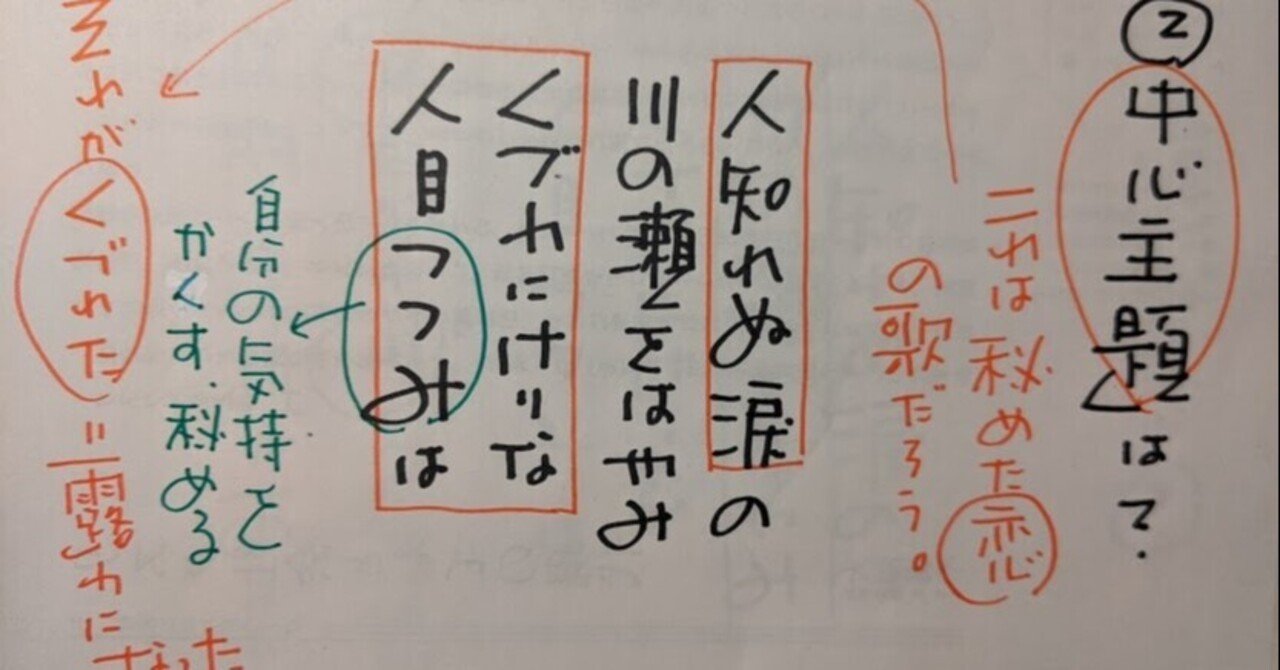 ②中心主題は？
これは秘めた恋
の歌だろう。
人知れぬ涙の
川の瀬をはやみ
くづれにけりな
人目つつみは
自分の気持を
かくす、秘める
それがくづれた＝露わに
なった